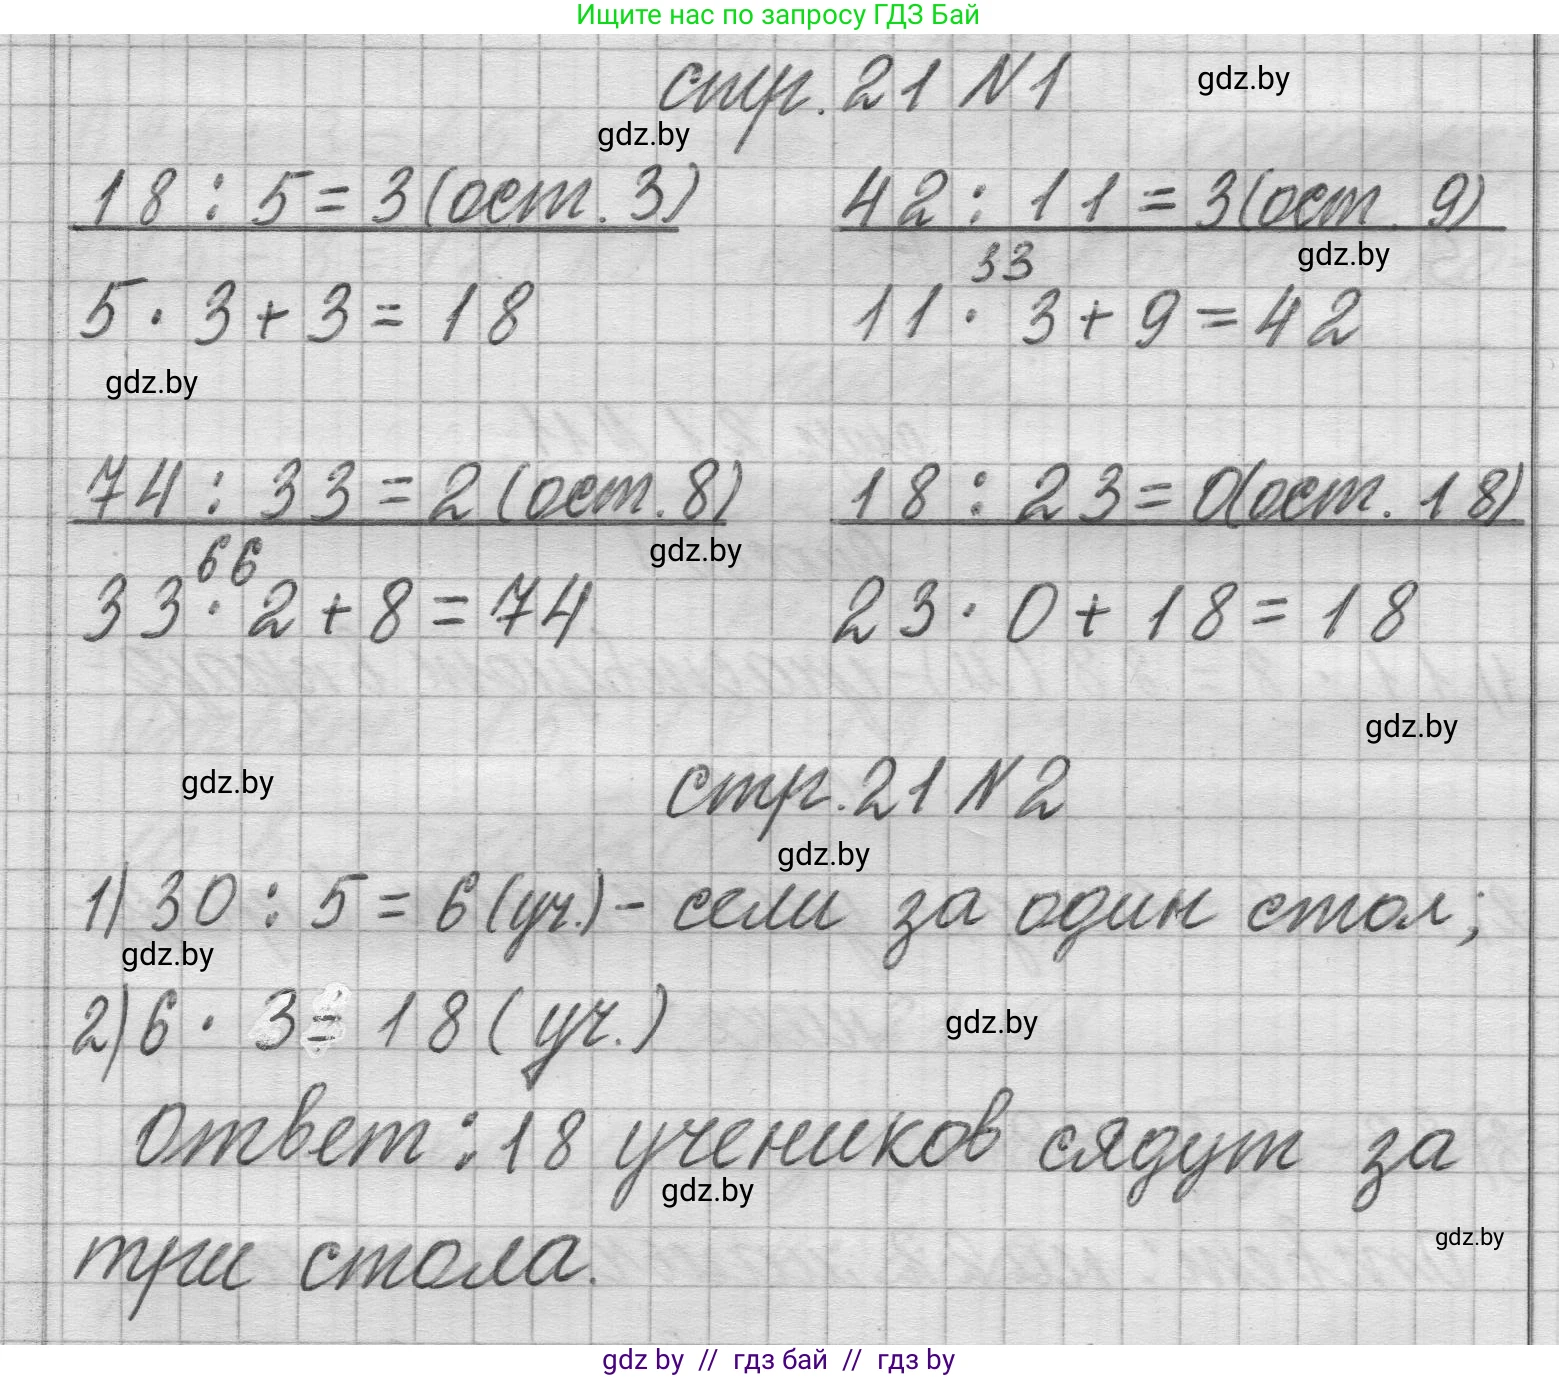 Ищите нас по запросу ГДЗ Бай
стр. 21 N1
gdz.by
gdz.by
18 : 5 = 3 (ост. 3)
42 : 11 = 3 (ост. 9)
gdz.by
5 · 3 + 3 = 18
33
11 · 3 + 9 = 42
gdz.by
74 : 33 = 2 (ост. 8)
18 : 23 = 0 (ост. 18)
gdz.by
66
33 · 2 + 8 = 74
23 · 0 + 18 = 18
gdz.by
gdz.by
стр. 21 N2
gdz.by
1) 30 : 5 = 6 (уч.) - сели за один стол;
gdz.by
2) 6 · 3 = 18 (уч.)
gdz.by
Ответ: 18 учеников сядут за
gdz.by
три стола.
gdz.by
gdz by // гдз бай // гдз by